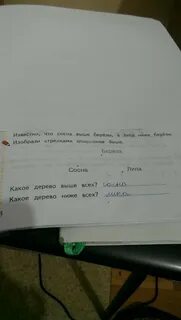 Известно, что сосна выше берёзы, а липа ниже берёзы.
Изобрази стрелками отношение выше.
Берёза
Сосна Липа
Какое дерево выше всех? сосна
Какое дерево ниже всех? липа